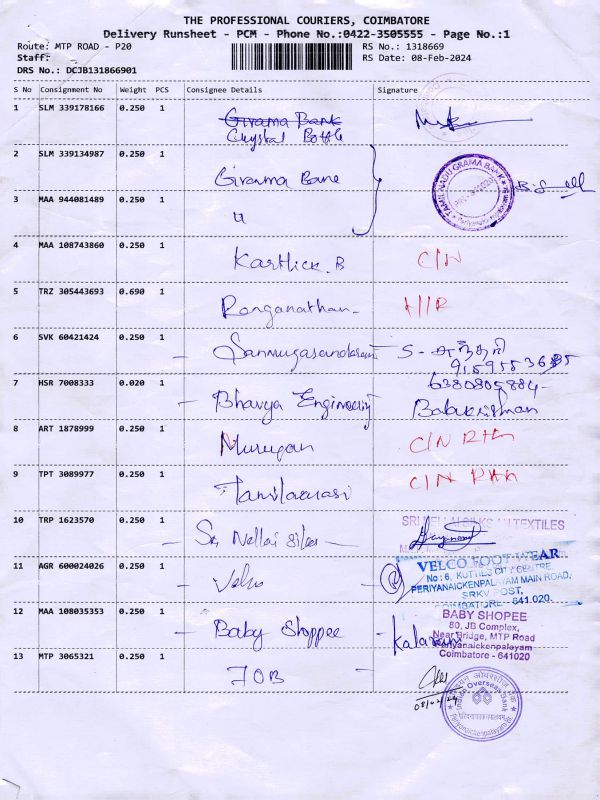 THE PROFESSIONAL COURIERS, COIMBATORE
Delivery Runsheet - PCM - Phone No.:0422-3505555 - Page No.:1
Route: MTP ROAD - P20
RS No.: 1318669
Staff:
RS Date: 08-Feb-2024
DRS No.: DCJB131866901
S No Consignment No Weight PCS Consignee Details Signature
1 SLM 339178166 0.250 1 Grama Bank
Crystal Bottle
2 SLM 339134987 0.250 1 Grama Bane
TAMIL NADU GRAMA BANK
3 MAA 944081489 0.250 1 "
4 MAA 108743860 0.250 1 Karthick. B C/N
5 TRZ 305443693 0.690 1 Ranganathan
6 SVK 60421424 0.250 1 - Sanmugasundaram S -
7 HSR 7008333 0.020 1 - Bhavya Engineering 6380805884-
Balakrishnan
8 ART 1878999 0.250 1 Murugan C/N
9 TPT 3089977 0.250 1 Tamilarasi C/N
10 TRP 1623570 0.250 1 - Sri Nellai Silks - SRI NELLAI SILKS TEXTILES
11 AGR 600024026 0.250 1 - Velco - VELCO FOOT WEAR
No : 6, KUTTIES CITY CENTRE,
PERIYANAICKENPALAYAM MAIN ROAD,
SRKV POST,
COIMBATORE - 641 020.
12 MAA 108035353 0.250 1 - Baby Shoppee - BABY SHOPEE
80, JB Complex,
Near Bridge, MTP Road
Periyanaickenpalayam
Coimbatore - 641020
13 MTP 3065321 0.250 1 IOB -
08/02/24
Indian Overseas Bank